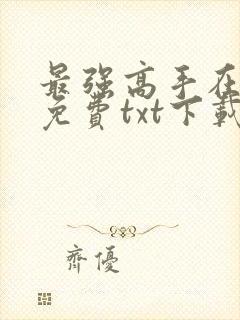 最强高手在
免費txt下載
齊優